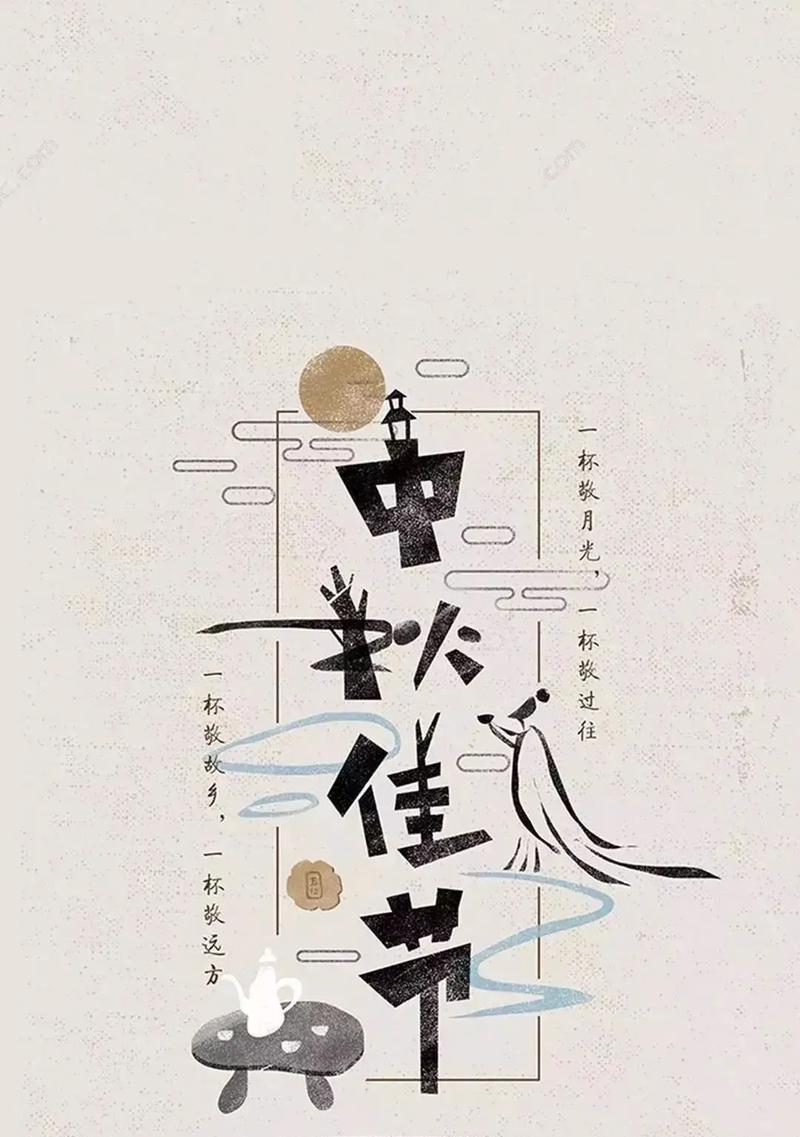 中秋佳节
一杯敬月光，一杯敬过往
一杯敬故乡，一杯敬远方
五仁
.com